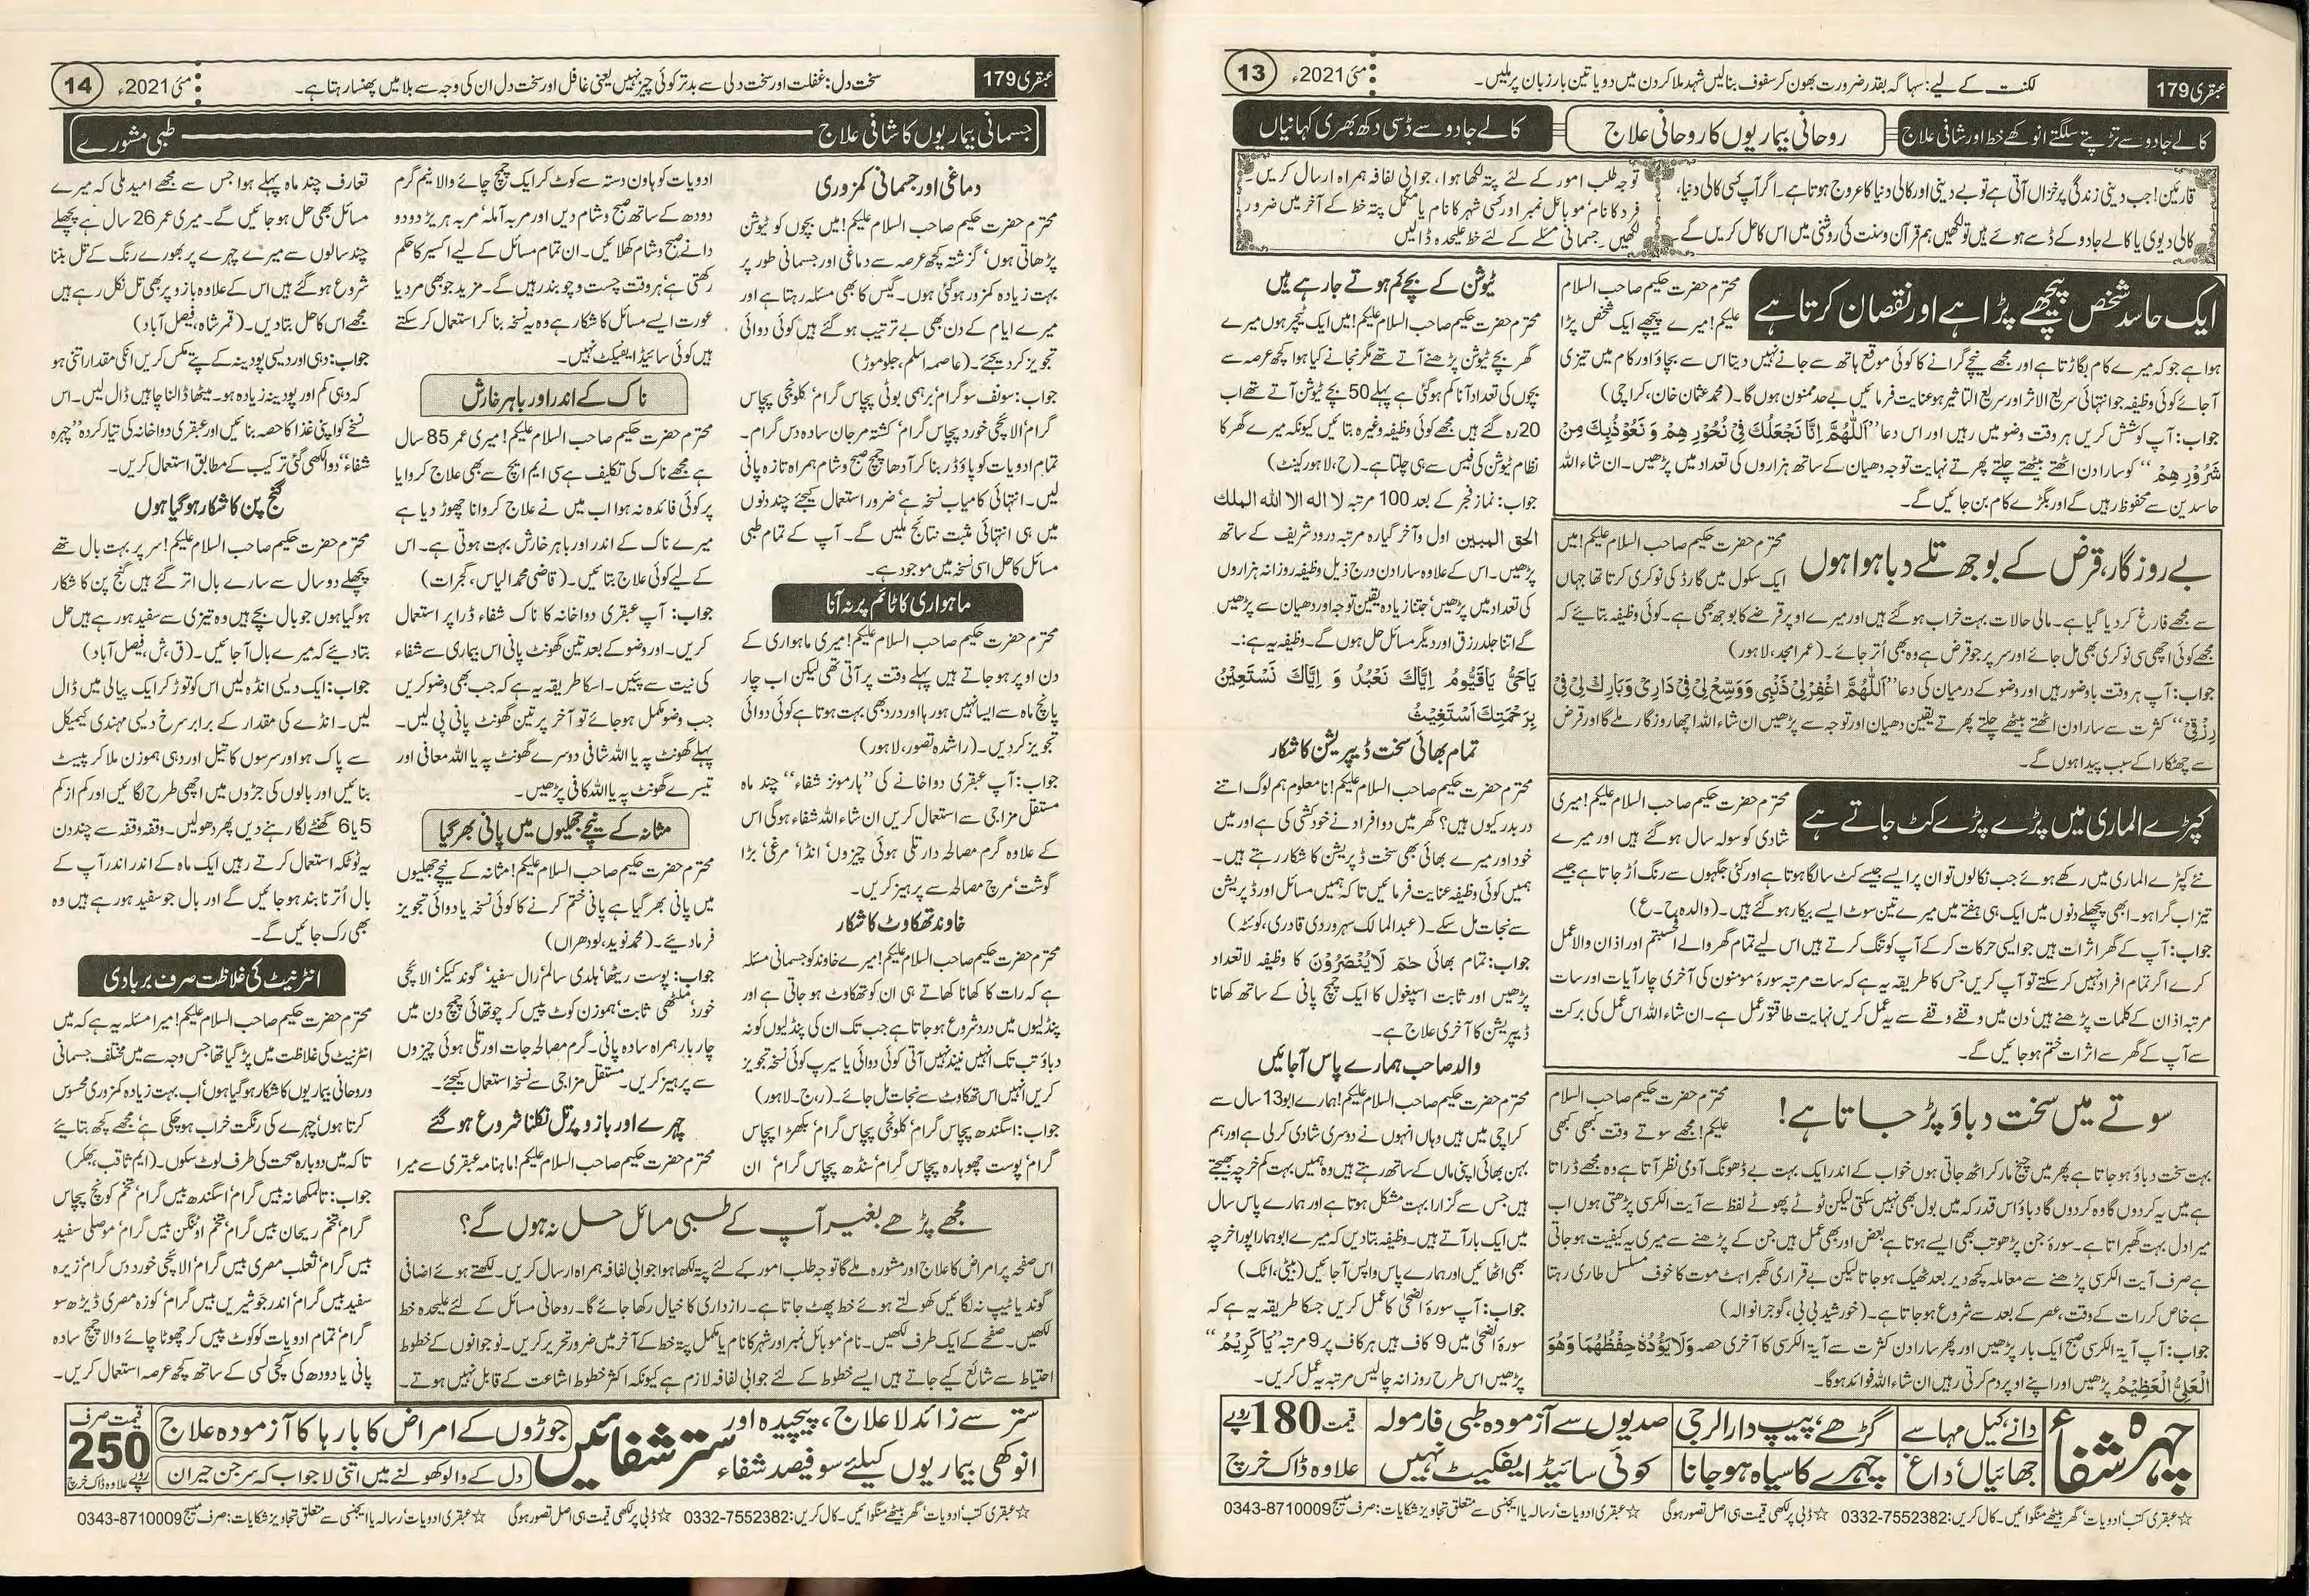 عبقری 179
لکنت کے لیے: سہاگہ بقدر ضرورت بھون کر سفوف بنالیں شہد ملا کر دن میں دو یا تین بار زبان پر ملیں۔
مئی 2021ء
13
کالے جادو سے تڑپتے سلگتے انوکھے خط اور شافی علاج
روحانی بیماریوں کا روحانی علاج
کالے جادو سے ڈسی دکھ بھری کہانیاں
قارئین! جب دینی زندگی پر خزاں آتی ہے تو بے دینی اور کالی دنیا کا عروج ہوتا ہے۔ اگر آپ کسی کالی دنیا،
کالی دیوی یا کالے جادو کے ڈسے ہوئے ہیں تو لکھیں ہم قرآن وسنت کی روشنی میں اس کا حل کریں گے۔
توجہ طلب امور کے لئے پتہ لکھا ہوا، جوابی لفافہ ہمراہ ارسال کریں۔
فرد کا نام، موبائل نمبر اور کسی شہر کا نام یا مکمل پتہ خط کے آخر میں ضرور
لکھیں۔ جسمانی مسئلے کے لئے خط علیحدہ ڈالیں
ایک حاسد شخص پیچھے پڑا ہے اور نقصان کرتا ہے
محترم حضرت حکیم صاحب السلام
علیکم! میرے پیچھے ایک شخص پڑا
ہوا ہے جو کہ میرے کام بگاڑتا ہے اور مجھے نیچے گرانے کا کوئی موقع ہاتھ سے جانے نہیں دیتا اس سے بچاؤ اور کام میں تیزی
آجائے کوئی وظیفہ جو انتہائی سریع الاثر اور سریع التاثیر ہو عنایت فرمائیں بے حد ممنون ہوں گا۔ (محمد عثمان خان، کراچی)
جواب: آپ کوشش کریں ہر وقت وضو میں رہیں اور اس دعا ’’اَللّٰهُمَّ اِنَّا نَجْعَلُكَ فِيْ نُحُوْرِ هِمْ وَ نَعُوْذُبِكَ مِنْ
شُرُوْرِ هِمْ‘‘ کو سارا دن اٹھتے بیٹھتے چلتے پھرتے نہایت توجہ دھیان کے ساتھ ہزاروں کی تعداد میں پڑھیں۔ ان شاء اللہ
حاسدین سے محفوظ رہیں گے اور بگڑے کام بن جائیں گے۔
بے روزگار، قرض کے بوجھ تلے دبا ہوا ہوں
محترم حضرت حکیم صاحب السلام علیکم! میں
ایک سکول میں گارڈ کی نوکری کرتا تھا جہاں
سے مجھے فارغ کر دیا گیا ہے۔ مالی حالات بہت خراب ہو گئے ہیں اور میرے اوپر قرضے کا بوجھ بھی ہے۔ کوئی وظیفہ بتائیے کہ
مجھے کوئی اچھی سی نوکری بھی مل جائے اور سر پر جو قرض ہے وہ بھی اُتر جائے۔ (عمر امجد، لاہور)
جواب: آپ ہر وقت باوضو رہیں اور وضو کے درمیان کی دعا ’’اَللّٰهُمَّ اغْفِرْلِیْ ذَنْۢبِیْ وَوَسِّعْ لِیْ فِیْ دَارِیْ وَبَارِكْ لِیْ فِیْ
رِزْقِیْ‘‘ کثرت سے سارا دن اٹھتے بیٹھے چلتے پھرتے یقین دھیان اور توجہ سے پڑھیں ان شاء اللہ اچھا روزگار ملے گا اور قرض
سے چھٹکارا کے سبب پیدا ہوں گے۔
کپڑے الماری میں پڑے پڑے کٹ جاتے ہے
محترم حضرت حکیم صاحب السلام علیکم! میری
شادی کو سولہ سال ہو گئے ہیں اور میرے
نئے کپڑے الماری میں رکھے ہوئے جب نکالوں تو ان پر ایسے جیسے کٹ سا لگا ہوتا ہے اور کئی جگہوں سے رنگ اُڑ جاتا ہے جیسے
تیزاب گرا ہو۔ ابھی پچھلے دنوں میں ایک ہی ہفتے میں میرے تین سوٹ ایسے بیکار ہو گئے ہیں۔ (والدہ ح۔ع)
جواب: آپ کے گھر اثرات ہیں جو ایسی حرکات کر کے آپ کو تنگ کرتے ہیں اس لیے تمام گھر والے افحسبتم اور اذان والا عمل
کرے اگر تمام افراد نہیں کر سکتے تو آپ کریں جس کا طریقہ یہ ہے کہ سات مرتبہ سورۂ مومنون کی آخری چار آیات اور سات
مرتبہ اذان کے کلمات پڑھنے ہیں، دن میں وقفے وقفے سے یہ عمل کریں نہایت طاقتور عمل ہے۔ ان شاء اللہ اس عمل کی برکت
سے آپ کے گھر سے اثرات ختم ہو جائیں گے۔
سوتے میں سخت دباؤ پڑ جاتا ہے!
محترم حضرت حکیم صاحب السلام
علیکم! مجھے سوتے وقت کبھی کبھی
بہت سخت دباؤ ہو جاتا ہے پھر میں چیخ مار کر اٹھ جاتی ہوں خواب کے اندر ایک بہت بے ڈھونگ آدمی نظر آتا ہے وہ مجھے ڈراتا
ہے میں یہ کردوں گا وہ کردوں گا دباؤ اس قدر کہ میں بول بھی نہیں سکتی لیکن ٹوٹے پھوٹے لفظ سے آیت الکرسی پڑھتی ہوں اب
میرا دل بہت گھبراتا ہے۔ سورۂ جن پڑھو تب بھی ایسے ہوتا ہے بعض اور بھی عمل ہیں جن کے پڑھنے سے میری یہ کیفیت ہو جاتی
ہے صرف آیت الکرسی پڑھنے سے معاملہ کچھ دیر بعد ٹھیک ہو جاتا لیکن بے قراری گھبراہٹ موت کا خوف مسلسل طاری رہتا
ہے خاص کر رات کے وقت، عصر کے بعد سے شروع ہو جاتا ہے۔ (خورشید بی بی، گوجرانوالہ)
جواب: آپ آیۃ الکرسی صبح ایک بار پڑھیں اور پھر سارا دن کثرت سے آیۃ الکرسی کا آخری حصہ وَلَا یَؤُدُهٗ حِفْظُهُمَا وَهُوَ
الْعَلِیُّ الْعَظِیْمُ پڑھیں اور اپنے اوپر دم کرتی رہیں ان شاء اللہ فوائد ہوگا۔
ٹیوشن کے بچے کم ہوتے جا رہے ہیں
محترم حضرت حکیم صاحب السلام علیکم! میں ایک ٹیچر ہوں میرے
گھر بچے ٹیوشن پڑھنے آتے تھے مگر نجانے کیا ہوا کچھ عرصہ سے
بچوں کی تعداد آنا کم ہو گئی ہے پہلے 50 بچے ٹیوشن آتے تھے اب
20 رہ گئے ہیں مجھے کوئی وظیفہ وغیرہ بتائیں کیونکہ میرے گھر کا
نظام ٹیوشن کی فیس سے ہی چلتا ہے۔ (ح، لاہور کینٹ)
جواب: نماز فجر کے بعد 100 مرتبہ لا اله الا الله الملك
الحق المبین اول و آخر گیارہ مرتبہ درود شریف کے ساتھ
پڑھیں۔ اس کے علاوہ سارا دن درج ذیل وظیفہ روزانہ ہزاروں
کی تعداد میں پڑھیں، جتنا زیادہ یقین توجہ اور دھیان سے پڑھیں
گے اتنا جلد رزق اور دیگر مسائل حل ہوں گے۔ وظیفہ یہ ہے:۔
یَاحَیُّ یَاقَیُّومُ اِیَّاكَ نَعْبُدُ وَ اِیَّاكَ نَسْتَعِیْنُ
بِرَحْمَتِكَ اَسْتَغِیْثُ
تمام بھائی سخت ڈیپریشن کا شکار
محترم حضرت حکیم صاحب السلام علیکم! نامعلوم ہم لوگ اتنے
دربدر کیوں ہیں؟ گھر میں دو افراد نے خودکشی کی ہے اور میں
خود اور میرے بھائی بھی سخت ڈپریشن کا شکار رہتے ہیں۔
ہمیں کوئی وظیفہ عنایت فرمائیں تاکہ ہمیں مسائل اور ڈپریشن
سے نجات مل سکے۔ (عبدالمالک سہروردی قادری، کوئٹہ)
جواب: تمام بھائی حٰمٓ لَا یُنْصَرُوْنَ کا وظیفہ لاتعداد
پڑھیں اور ثابت اسپغول کا ایک چمچ پانی کے ساتھ کھانا
ڈیپریشن کا آخری علاج ہے۔
والد صاحب ہمارے پاس آجائیں
محترم حضرت حکیم صاحب السلام علیکم! ہمارے ابو 13 سال سے
کراچی میں ہیں وہاں انہوں نے دوسری شادی کرلی ہے اور ہم
بہن بھائی اپنی ماں کے ساتھ رہتے ہیں وہ ہمیں بہت کم خرچہ بھیجتے
ہیں جس سے گزارا بہت مشکل ہوتا ہے اور ہمارے پاس سال
میں ایک بار آتے ہیں۔ وظیفہ بتادیں کہ میرے ابو ہمارا پورا خرچہ
بھی اٹھائیں اور ہمارے پاس واپس آجائیں (بیٹی، اٹک)
جواب: آپ سورۂ الضحیٰ کا عمل کریں جسکا طریقہ یہ ہے کہ
سورۂ الضحیٰ میں 9 کاف ہیں ہر کاف پر 9 مرتبہ ’’یَا کَرِیْمُ‘‘
پڑھیں اس طرح روزانہ چالیس مرتبہ یہ عمل کریں۔
چہرہ شفاء
دانے، کیل مہاسے
جھائیاں، داغ
گڑھے، پیپ دار الرجی
چہرے کا سیاہ ہو جانا
صدیوں سے آزمودہ طبی فارمولہ
کوئی سائیڈ ایفکیٹ نہیں
قیمت 180 روپے
علاوہ ڈاک خرچ
☆ عبقری کتب، ادویات، گھر بیٹھے منگوائیں۔ کال کریں: 0332-7552382 ☆ ڈبی پر لکھی قیمت ہی اصل تصور ہوگی ☆ عبقری ادویات، رسالہ یا ایجنسی سے متعلق تجاویز شکایات: صرف میسج 0343-8710009
عبقری 179
سخت دل: غفلت اور سخت دلی سے بدتر کوئی چیز نہیں یعنی غافل اور سخت دل ان کی وجہ سے بلا میں پھنسا رہتا ہے۔
مئی 2021ء
14
جسمانی بیماریوں کا شافی علاج
طبی مشورے
دماغی اور جسمانی کمزوری
محترم حضرت حکیم صاحب السلام علیکم! میں بچوں کو ٹیوشن
پڑھاتی ہوں، گزشتہ کچھ عرصہ سے دماغی اور جسمانی طور پر
بہت زیادہ کمزور ہو گئی ہوں۔ گیس کا بھی مسئلہ رہتا ہے اور
میرے ایام کے دن بھی بے ترتیب ہو گئے ہیں کوئی دوائی
تجویز کردیجئے۔ (عاصمہ اسلم، جلو موڑ)
جواب: سونف سو گرام، برہمی بوٹی پچاس گرام، کلونجی پچاس
گرام، الائچی خورد پچاس گرام، کشتہ مرجان سادہ دس گرام۔
تمام ادویات کو پاؤڈر بنا کر آدھا چمچ صبح و شام ہمراہ تازہ پانی
لیں۔ انتہائی کامیاب نسخہ ہے، ضرور استعمال کیجئے چند دنوں
میں ہی انتہائی مثبت نتائج ملیں گے۔ آپ کے تمام طبی
مسائل کا حل اسی نسخہ میں موجود ہے۔
ماہواری کا ٹائم پر نہ آنا
محترم حضرت حکیم صاحب السلام علیکم! میری ماہواری کے
دن اوپر ہو جاتے ہیں پہلے وقت پر آتی تھی لیکن اب چار
پانچ ماہ سے ایسا نہیں ہو رہا اور درد بھی بہت ہوتا ہے کوئی دوائی
تجویز کردیں۔ (راشدہ تصور، لاہور)
جواب: آپ عبقری دواخانے کی ’’ہارمونز شفاء‘‘ چند ماہ
مستقل مزاجی سے استعمال کریں ان شاء اللہ شفاء ہوگی اس
کے علاوہ گرم مصالحہ دار تلی ہوئی چیزوں، انڈا، مرغی، بڑا
گوشت، مرچ مصالحہ سے پرہیز کریں۔
خاوند تھکاوٹ کا شکار
محترم حضرت حکیم صاحب السلام علیکم! میرے خاوند کو جسمانی مسئلہ
ہے کہ رات کا کھانا کھاتے ہی ان کو تھکاوٹ ہو جاتی ہے اور
پنڈلیوں میں درد شروع ہو جاتا ہے جب تک ان کی پنڈلیوں کو نہ
دباؤ تب تک انہیں نیند نہیں آتی کوئی دوائی یا سیرپ کوئی نسخہ تجویز
کریں انہیں اس تھکاوٹ سے نجات مل جائے۔ (ر، ج۔ لاہور)
جواب: اسگندھ پچاس گرام، کلونجی پچاس گرام، بکھڑا پچاس
گرام، پوست چھوہارہ پچاس گرام، سنڈھ پچاس گرام، ان
ادویات کو ہاون دستہ سے کوٹ کر ایک چمچ چائے والا نیم گرم
دودھ کے ساتھ صبح و شام دیں اور مربہ آملہ، مربہ ہریڑ دو دو
دانے صبح و شام کھلائیں۔ ان تمام مسائل کے لیے اکسیر کا حکم
رکھتی ہے، ہر وقت چست و چوبند رہیں گے۔ مزید جو بھی مرد یا
عورت ایسے مسائل کا شکار ہے وہ یہ نسخہ بنا کر استعمال کر سکتے
ہیں کوئی سائیڈ ایفیکٹ نہیں۔
ناک کے اندر اور باہر خارش
محترم حضرت حکیم صاحب السلام علیکم! میری عمر 85 سال
ہے مجھے ناک کی تکلیف ہے سی ایم ایچ سے بھی علاج کروایا
پر کوئی فائدہ نہ ہوا اب میں نے علاج کروانا چھوڑ دیا ہے
میرے ناک کے اندر اور باہر خارش بہت ہوتی ہے۔ اس
کے لیے کوئی علاج بتائیں۔ (قاضی محمد الیاس، گجرات)
جواب: آپ عبقری دواخانہ کا ناک شفاء ڈراپر استعمال
کریں۔ اور وضو کے بعد تین گھونٹ پانی اس بیماری سے شفاء
کی نیت سے پئیں۔ اسکا طریقہ یہ ہے کہ جب بھی وضو کریں
جب وضو مکمل ہو جائے تو آخر پر تین گھونٹ پانی پی لیں۔
پہلے گھونٹ پہ یا اللہ شافی دوسرے گھونٹ پہ یا اللہ معافی اور
تیسرے گھونٹ پہ یا اللہ کافی پڑھیں۔
مثانہ کے نیچے جھلیوں میں پانی بھر گیا
محترم حضرت حکیم صاحب السلام علیکم! مثانہ کے نیچے جھلیوں
میں پانی بھر گیا ہے پانی ختم کرنے کا کوئی نسخہ یا دوائی تجویز
فرمادیئے۔ (محمد نوید، لودھراں)
جواب: پوست ریٹھا، ہلدی سالم، رال سفید، گوند کیکر، الائچی
خورد، ملٹھی ثابت، ہموزن کوٹ پیس کر چوتھائی چمچ دن میں
چار بار ہمراہ سادہ پانی۔ گرم مصالحہ جات اور تلی ہوئی چیزوں
سے پرہیز کریں۔ مستقل مزاجی سے نسخہ استعمال کیجئے۔
چہرے اور بازو پر تل نکلنا شروع ہو گئے
محترم حضرت حکیم صاحب السلام علیکم! ماہنامہ عبقری سے میرا
تعارف چند ماہ پہلے ہوا جس سے مجھے امید ملی کہ میرے
مسائل بھی حل ہو جائیں گے۔ میری عمر 26 سال ہے پچھلے
چند سالوں سے میرے چہرے پر بھورے رنگ کے تل بننا
شروع ہو گئے ہیں اس کے علاوہ بازو پر بھی تل نکل رہے ہیں
مجھے اس کا حل بتادیں۔ (قمر شاہ، فیصل آباد)
جواب: دہی اور دیسی پودینہ کے پتے مکس کریں انکی مقدار اتنی ہو
کہ دہی کم اور پودینہ زیادہ ہو۔ میٹھا ڈالنا چاہیں ڈال لیں۔ اس
نسخے کو اپنی غذا کا حصہ بنائیں اور عبقری دواخانہ کی تیار کردہ ’’چہرہ
شفاء‘‘ دوا لکھی گئی ترکیب کے مطابق استعمال کریں۔
گنج پن کا شکار ہو گیا ہوں
محترم حضرت حکیم صاحب السلام علیکم! سر پر بہت بال تھے
پچھلے دو سال سے سارے بال اتر گئے ہیں گنج پن کا شکار
ہو گیا ہوں جو بال بچے ہیں وہ تیزی سے سفید ہو رہے ہیں حل
بتادیئے کہ میرے بال آجائیں۔ (ق، ش، فیصل آباد)
جواب: ایک دیسی انڈہ لیں اس کو توڑ کر ایک پیالی میں ڈال
لیں۔ انڈے کی مقدار کے برابر سرخ دیسی مہندی کیمیکل
سے پاک ہو اور سرسوں کا تیل اور دہی ہموزن ملا کر پیسٹ
بنائیں اور بالوں کی جڑوں میں اچھی طرح لگائیں اور کم از کم
5 یا 6 گھنٹے لگا رہنے دیں پھر دھولیں۔ وقفہ وقفہ سے چند دن
یہ ٹوٹکہ استعمال کرتے رہیں ایک ماہ کے اندر اندر آپ کے
بال اُترنا بند ہو جائیں گے اور بال جو سفید ہو رہے ہیں وہ
بھی رک جائیں گے۔
انٹرنیٹ کی غلاظت صرف بربادی
محترم حضرت حکیم صاحب السلام علیکم! میرا مسئلہ یہ ہے کہ میں
انٹرنیٹ کی غلاظت میں پڑ گیا تھا جس وجہ سے میں مختلف جسمانی
وروحانی بیماریوں کا شکار ہو گیا ہوں، اب بہت زیادہ کمزوری محسوس
کرتا ہوں، چہرے کی رنگت خراب ہو چکی ہے، مجھے کچھ بتائیے
تاکہ میں دوبارہ صحت کی طرف لوٹ سکوں۔ (ایم ثاقب، بھکر)
جواب: تالمکھانہ بیس گرام، اسگندھ بیس گرام، تخم کونچ پچاس
گرام، تخم ریحان بیس گرام، تخم اوٹنگن بیس گرام، موصلی سفید
بیس گرام، ثعلب مصری بیس گرام، الائچی خورد دس گرام، زیرہ
سفید بیس گرام، اندر جَو شیریں بیس گرام، کوزہ مصری ڈیڑھ سو
گرام، تمام ادویات کو کوٹ پیس کر چھوٹا چائے والا چمچ سادہ
پانی یا دودھ کی کچی لسی کے ساتھ کچھ عرصہ استعمال کریں۔
مجھے پڑھے بغیر آپ کے طبی مسائل حل نہ ہوں گے؟
اس صفحہ پر امراض کا علاج اور مشورہ ملے گا توجہ طلب امور کے لئے پتہ لکھا ہوا جوابی لفافہ ہمراہ ارسال کریں۔ لکھتے ہوئے اضافی
گوند یا ٹیپ نہ لگائیں کھولتے ہوئے خط پھٹ جاتا ہے۔ رازداری کا خیال رکھا جائے گا۔ روحانی مسائل کے لئے علیحدہ خط
لکھیں۔ صفحے کے ایک طرف لکھیں۔ نام، موبائل نمبر اور شہر کا نام یا مکمل پتہ خط کے آخر میں ضرور تحریر کریں۔ نوجوانوں کے خطوط
احتیاط سے شائع کیے جاتے ہیں ایسے خطوط کے لئے جوابی لفافہ لازم ہے کیونکہ اکثر خطوط اشاعت کے قابل نہیں ہوتے۔
ستر سے زائد لاعلاج، پیچیدہ اور
انوکھی بیماریوں کیلئے سو فیصد شفاء
ستر شفائیں
جوڑوں کے امراض کا بارہا کا آزمودہ علاج
دل کے والو کھولنے میں اتنی لاجواب کہ سرجن حیران
قیمت صرف
250
روپے علاوہ ڈاک خرچ
☆ عبقری کتب، ادویات، گھر بیٹھے منگوائیں۔ کال کریں: 0332-7552382 ☆ ڈبی پر لکھی قیمت ہی اصل تصور ہوگی ☆ عبقری ادویات، رسالہ یا ایجنسی سے متعلق تجاویز شکایات: صرف میسج 0343-8710009